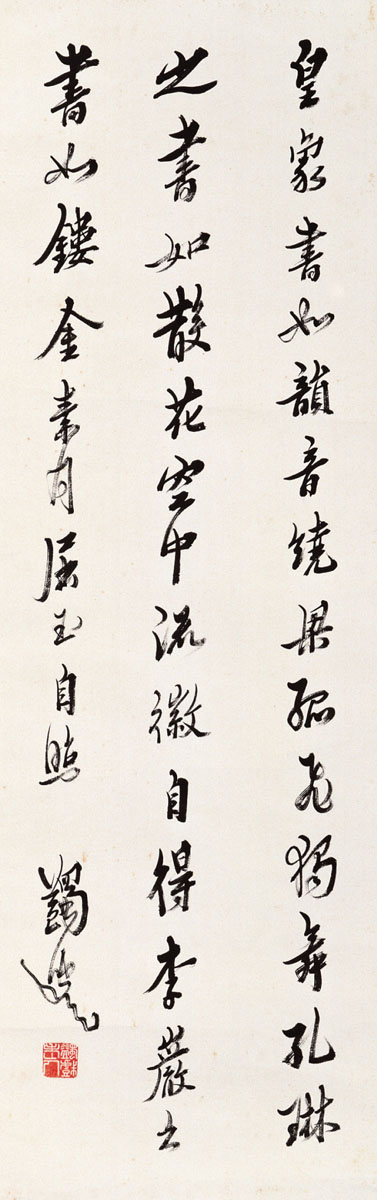 皇象書如韻音繞梁孤飛獨舞孔琳
之書如散花空中流徽自得李巖之
書如鏤金素月屈玉自照 蠲叟